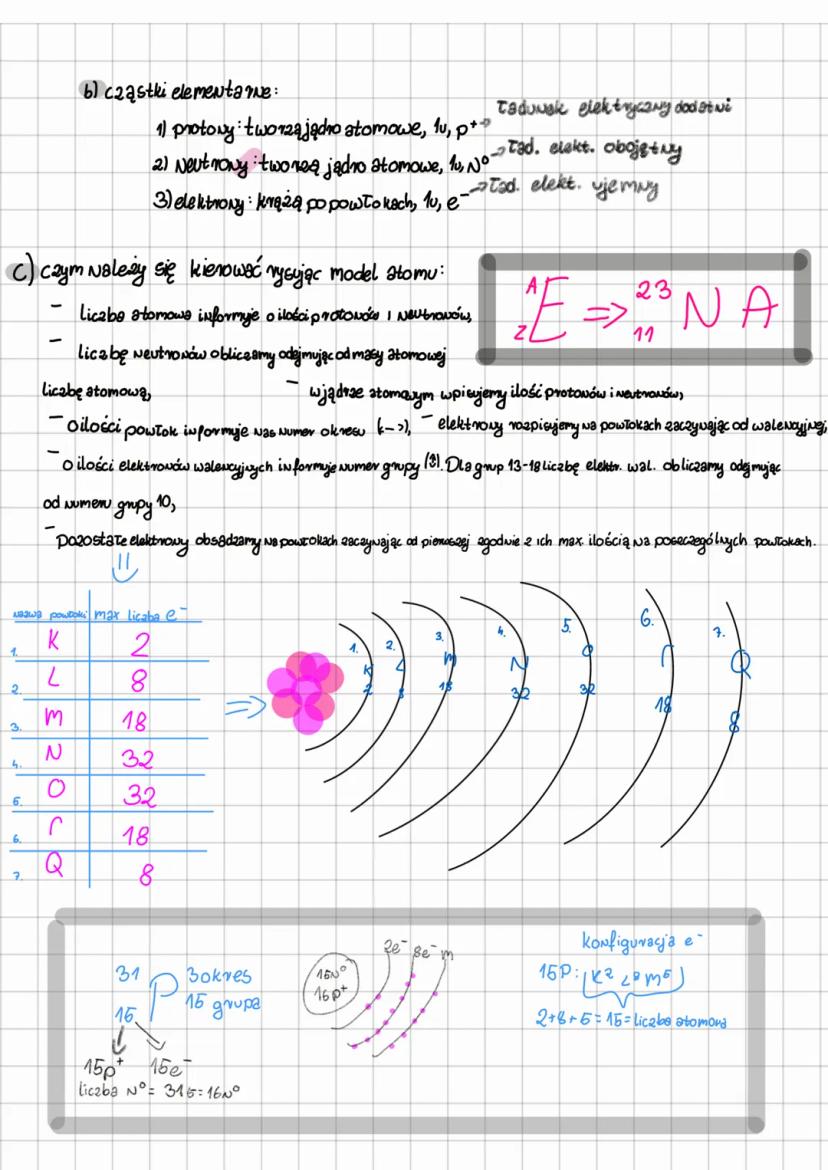 b) cząstki elementarne:
1) protony: tworzą jądro atomowe, 1u, p⁺ → Ładunek elektryczny dodatni
2) Neutrony: tworzą jądro atomowe, 1u, N⁰ → Ład. elekt. obojętny
3) elektrony: krążą po powłokach, 1u, e⁻ → Ład. elekt. ujemny
c) czym należy się kierować rysując model atomu:
ᴬ
E => ²³
NA
Z
11
- liczba atomowa informuje o ilości protonów i Neutronów,
- liczbę neutronów obliczamy odejmując od masy atomowej
liczbę atomową, - w jądrze atomowym wpisujemy ilość protonów i neutronów,
- o ilości powłok informuje nas numer okresu (->), - elektrony rozpisujemy na powłokach zaczynając od walencyjnej,
- o ilości elektronów walencyjnych informuje numer grupy. Dla grup 13-18 liczbę elektr. wal. obliczamy odejmując
od numeru grupy 10,
- pozostałe elektrony obsadzamy na powłokach zaczynając od pierwszej zgodnie z ich max. ilością na poszczególnych powłokach.
nazwa powłoki max liczba e⁻
1. K 2
2. L 8
3. M 18
4. N 32
5. O 32
6. P 18
7. Q 8
1. K 2
2. L 8
3. M 18
4. N 32
5. O 32
6. P 18
7. Q 8
31
P
15
3 okres
15 grupa
15p⁺ 15e⁻
liczba N⁰ = 31 15 = 16N⁰
16N⁰
15p⁺
2e⁻ 8e⁻ M
konfiguracja e⁻
15P: K² L⁸ M⁵
2+8+5=15=liczba atomowa